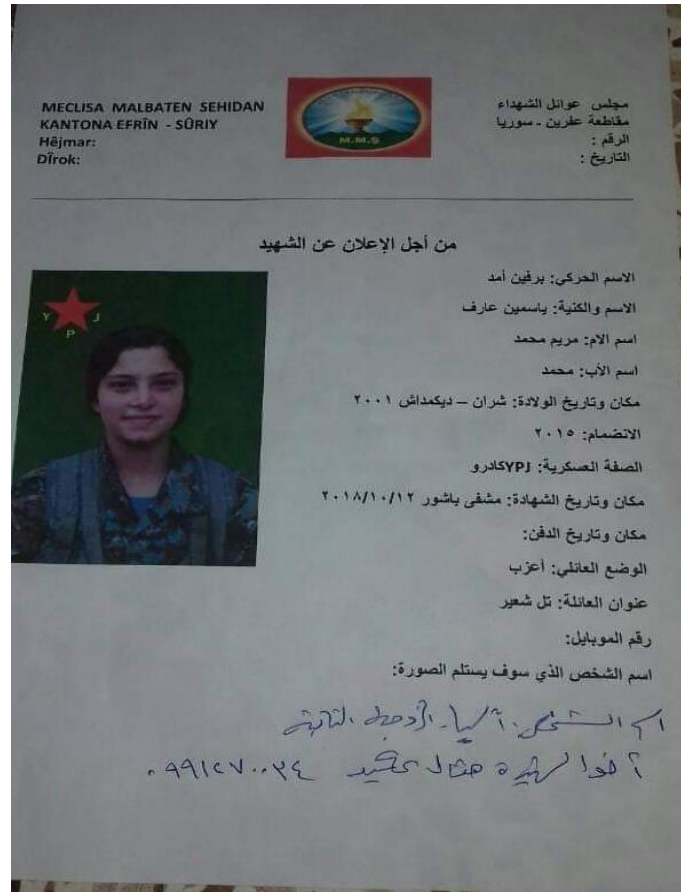 MECLISA MALBATEN SEHIDAN
KANTONA EFRÎN - SÛRIY
Hêjmar:
Dîrok:
M.M.S
مجلس عوائل الشهداء
مقاطعة عفرين - سوريا
الرقم :
التاريخ :
من أجل الإعلان عن الشهيد
Y P J
الاسم الحركي: برفين أمد
الاسم والكنية: ياسمين عارف
اسم الام: مريم محمد
اسم الأب: محمد
مكان وتاريخ الولادة: شران – ديكمداش ٢٠٠١
الانضمام: ٢٠١٥
الصفة العسكرية: YPJكادرو
مكان وتاريخ الشهادة: مشفى باشور ٢٠١٨/١٠/١٢
مكان وتاريخ الدفن:
الوضع العائلي: أعزب
عنوان العائلة: تل شعير
رقم الموبايل:
اسم الشخص الذي سوف يستلم الصورة:
اسم الشخص